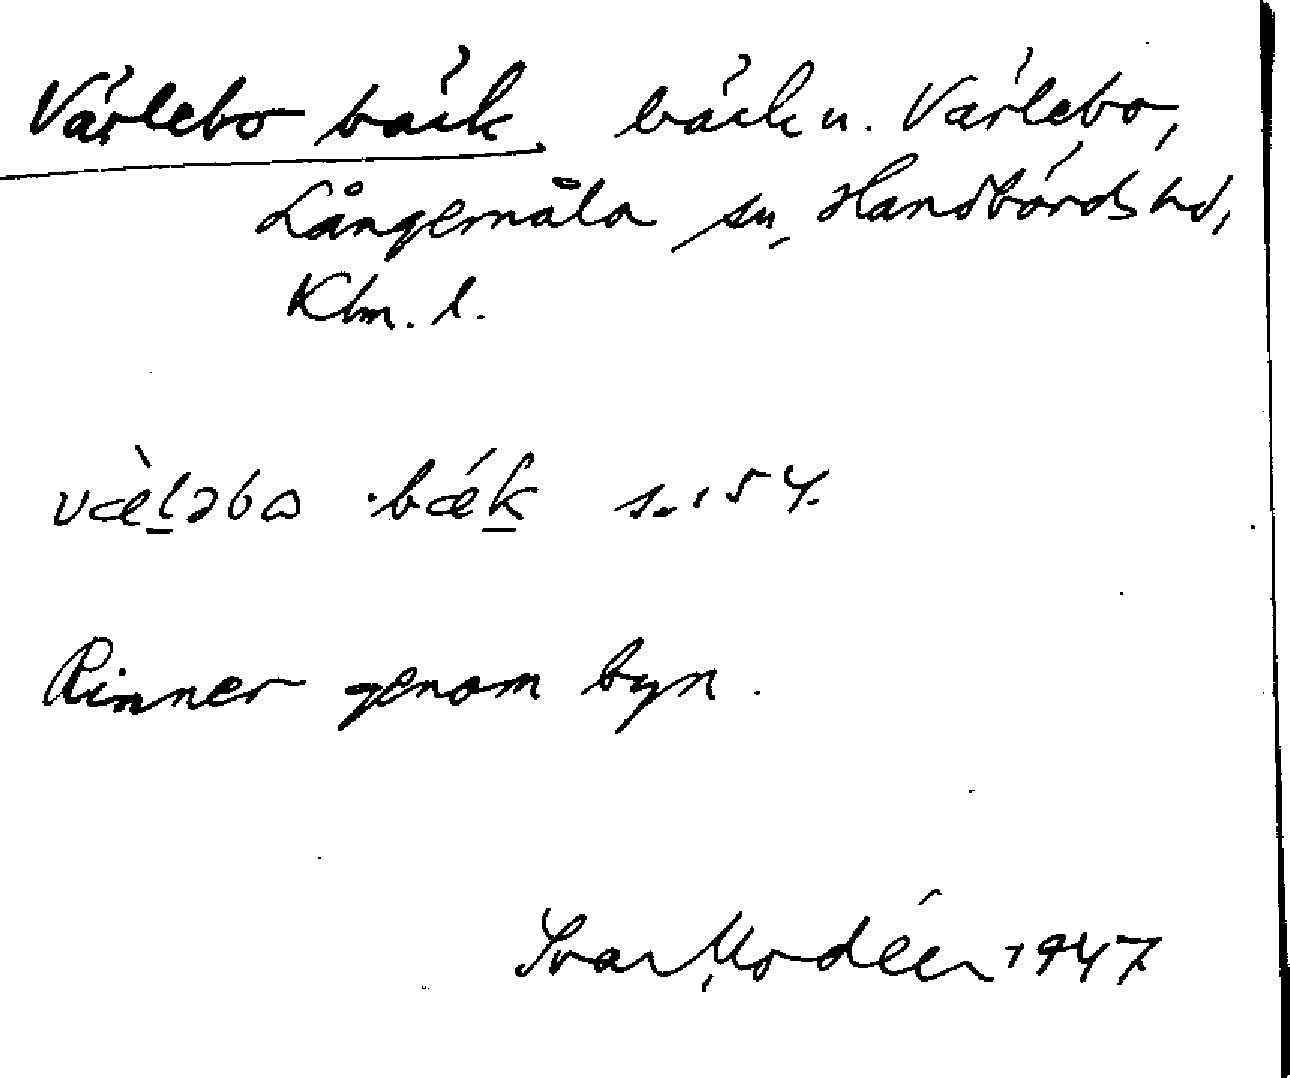 Värlebo bäck bäck u. Värlebo,
Långemåla sn, Handbörds hd,
Klm. l.
væ̀l̠əbo bǽk̠ s. 154.
Rinner genom byn.
Ivar Modéer 1947